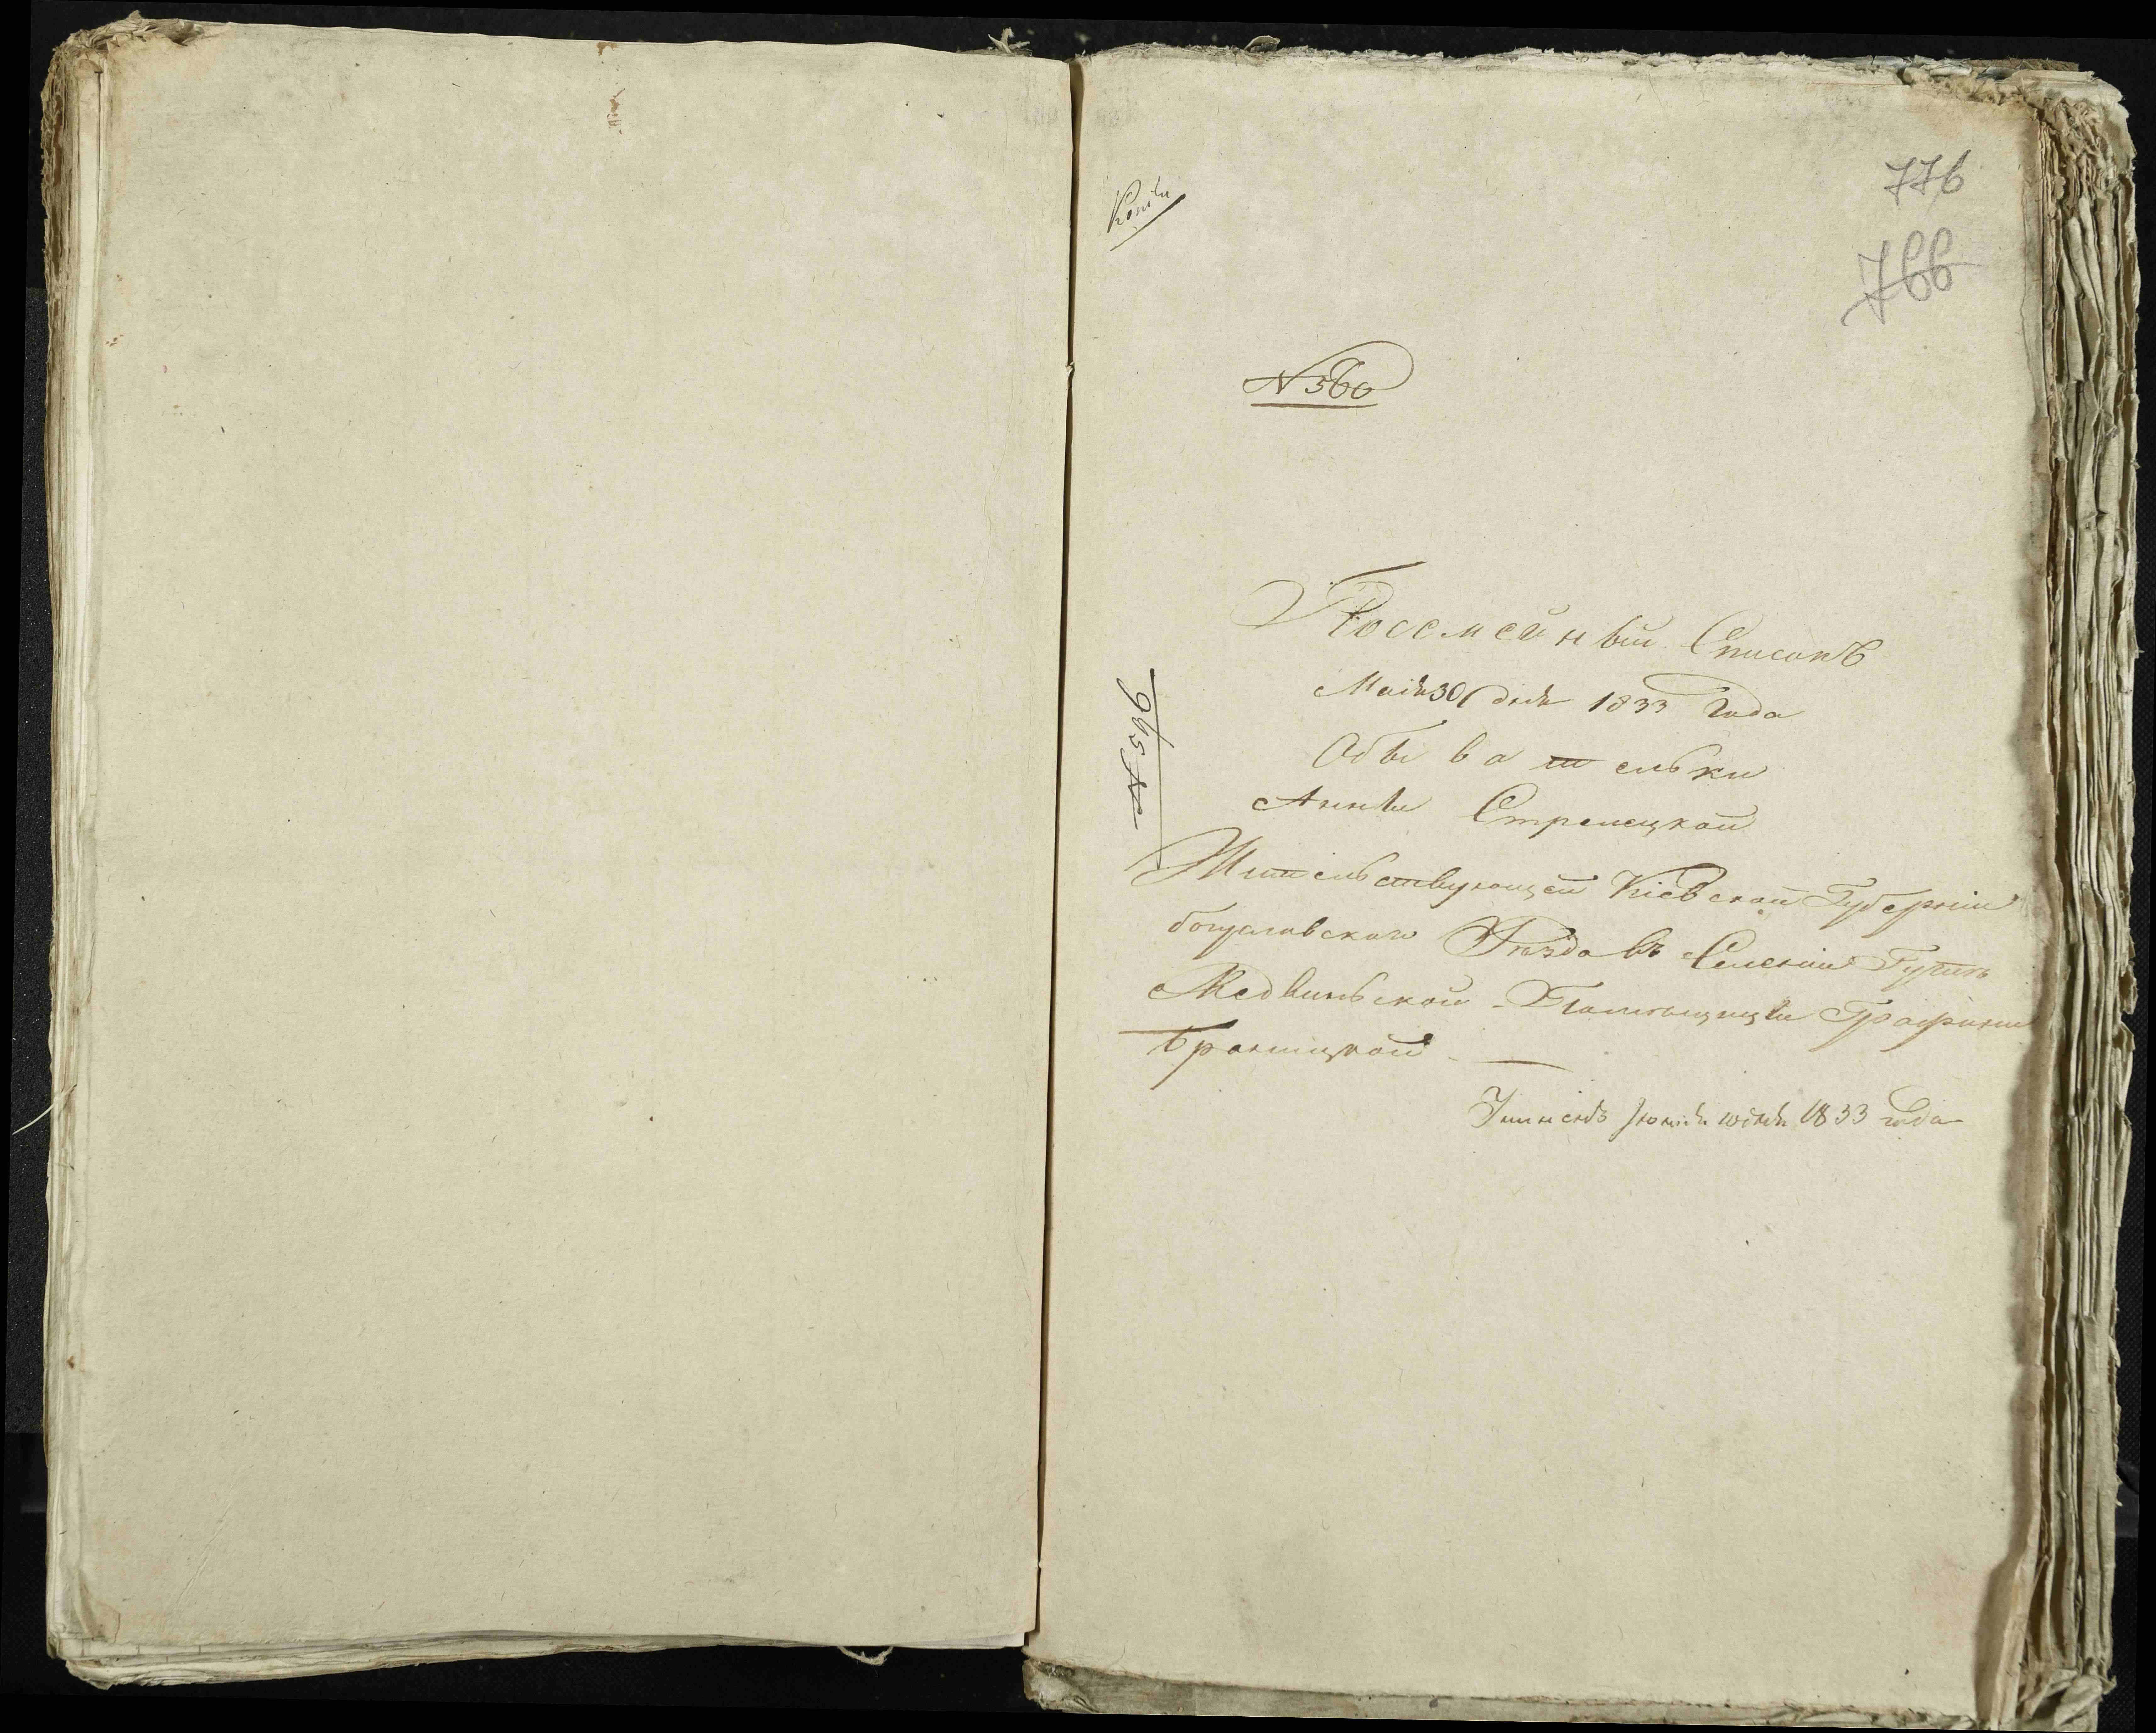 776
766
Копія
N 560
Посемейный Списокъ
Маія 30 дня 1833 Года
Обывательки
Анны Стрелецкой
Жительствующей Кіевской Губерніи
богуславскаго Уезда въ Селеніи Гутѣ
Медвинской Помѣщицы Графини
Браницкой. —
N 546
Іюнія 10 дня 1833 года